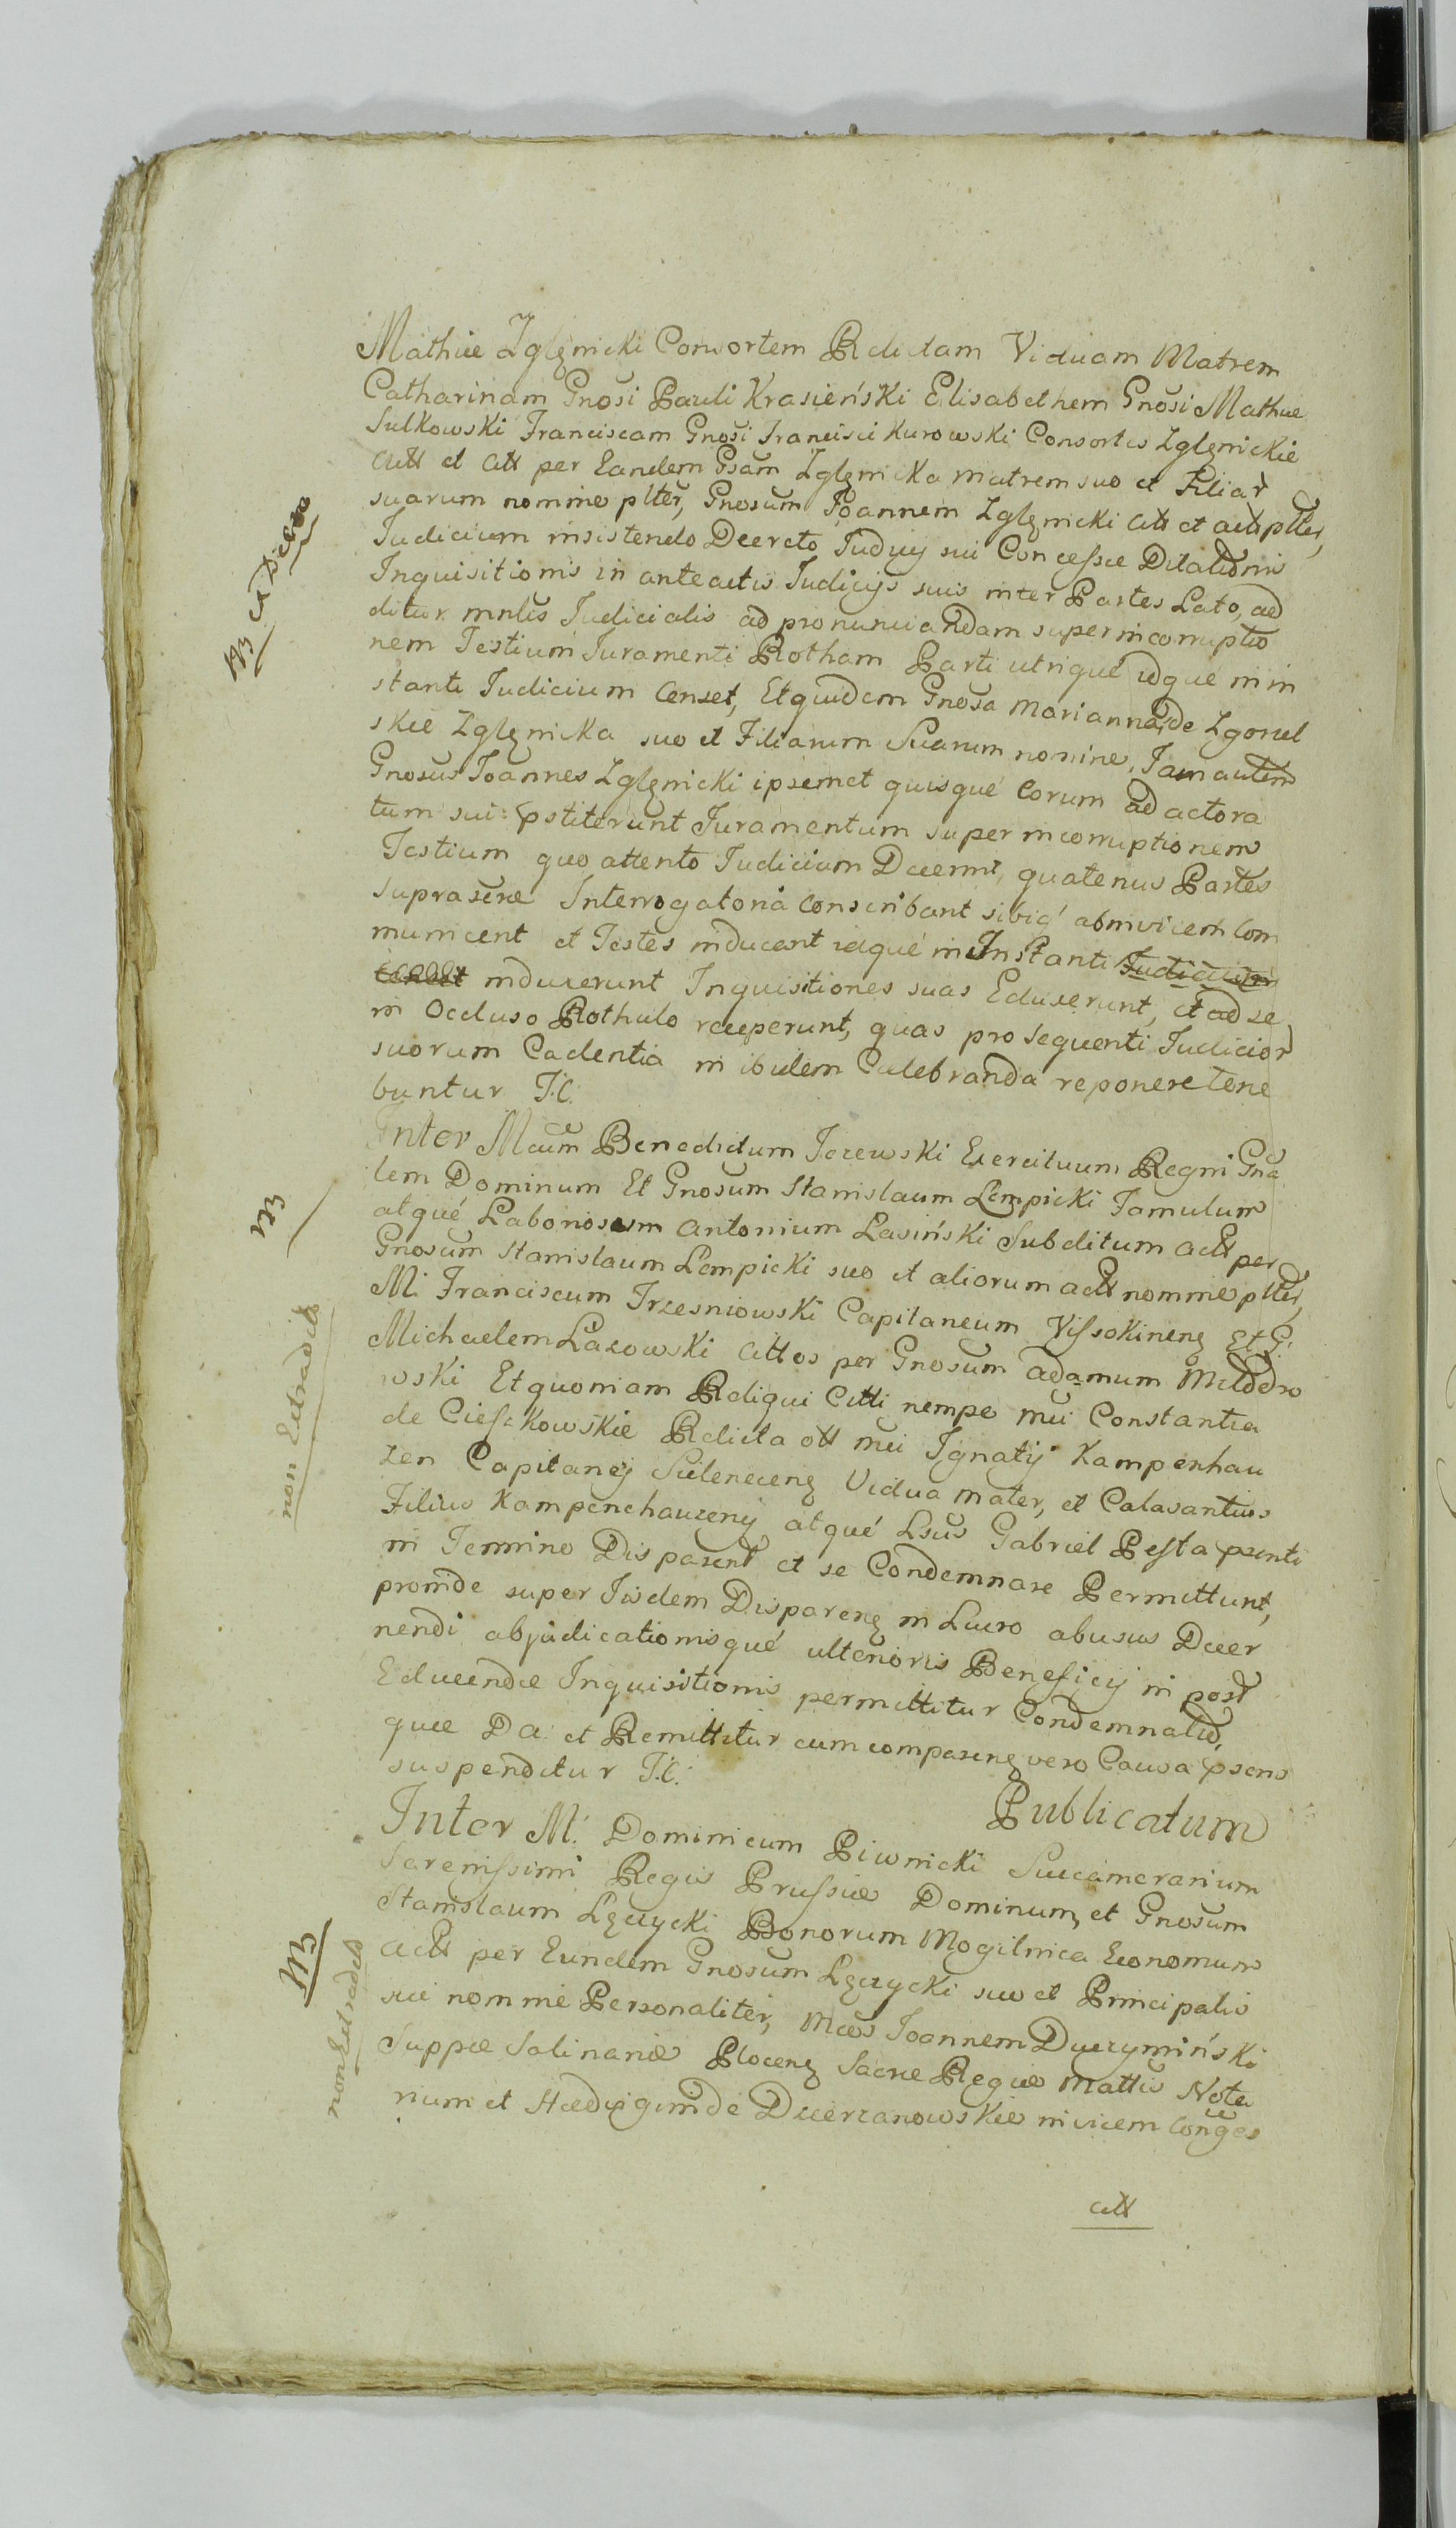 Mathiæ Zglęnicki Consortem Relictam Viduam Matrem
Catharinam Gnosi Pauli Krasieński Elisabethem Gnosi Mathiæ
Sulkowski Franciscam Gnosi Francisci Kurowski Consortes Zglęnickie
Citt et Citt per Eandem Gsam Zglęnicka Matrem suo et Filiar
suarum nomine plter, Gnosum Joannem Zglęnicki Citt et actt plter,
Judicium insistendo Decreto Judicij sui Concessæ Dilationis
Inquisitionis in anteactis Judicijs suis inter Partes Lato, ad
ditur mnlis Judicialis ad pronunciandam super incorruptio
nem Testium Juramenti Rotham Parti utriqué idque in in
stanti Judicium Censet, Et quidem Gnosa Marianna de Zgorzel
skie Zglęnicka suo et Filiarum Suarum nomine, Jam autem
Gnosus Joannes Zglęnicki ipsemet quisqué Eorum ad actora
tum sui: pstiterunt Juramentum super incorruptionem
Testium quo attento Judicium Decernit, quatenus Partes
suprascræ Interrogatoria Conscribant sibiq́ abinvicem Com
municent et Testes inducant idqué in Instanti Judicium
censet induxerunt Inquisitiones suas Eduxerunt, et ad se
in Occluso Rothulo receperunt, quas pro sequenti Judicior
suorum Cadentia in ibidem Celebranda reponere tene
buntur J.C.
Inter Mcum Benedictum Jezewski Exercituum Regni Gna
lem Dominum Et Gnosum Stanislaum Lempicki Famulum
atqué Laboriosum Antonium Lasiński Subditum actt per
Gnosum Stanislaum Lempicki suo et aliorum actt nomine plter,
M. Franciscum Trzesniowski Capitaneum Vissokinenę Et G.
Michaelem Lazowski Cittos per Gnosum Adamum Modro
wski Et quoniam Reliqui Citti nempe Mci Constantia
de Cieszkowskie Relicta ott Mci Ignatij Kampenhau
zen Capitanej Sulenecenę Vidua Mater, et Calasantius
Filius Kampenchauzenij atqué Lsus Gabriel Pesta psenti
in Termino Disparent et se Condemnare Permittunt,
proinde super Iisdem Disparenę in Lucro abusus Decer
nendi abjudicationisqué ulterioris Beneficij in post
Educendæ Inquisitionis permittitur Condemnatio,
quæ Da. et Remittitur cum comparenę vero Causa psens
suspenditur J.C.
Publicatum
Inter M. Dominicum Piwnicki Succamerarium
Serenissimi Regis Prussiæ Dominum, et Gnosum
Stanislaum Lęczycki Bonorum Mogilnica Economum
actt per Eundem Gnosum Lęczycki suo et Principalis
sui nomine Personaliter, Mcos Joannem Duczymiński
Suppæ Salinariæ Plocenę Sacræ Regiæ Mattis Nota
rium et Hedvigim de Dzierzanowskie invicem Conges
citt
NB et Dicere
NB
non Extradit
NB
non Extradit